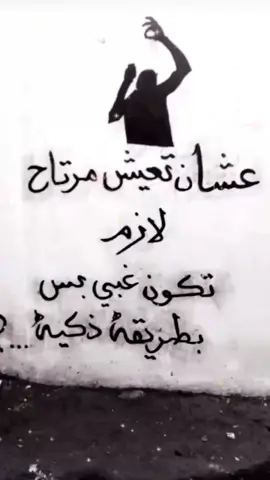 عشان تعيش مرتاح
لازم
تكون غبي بس
بطريقة ذكية...؟